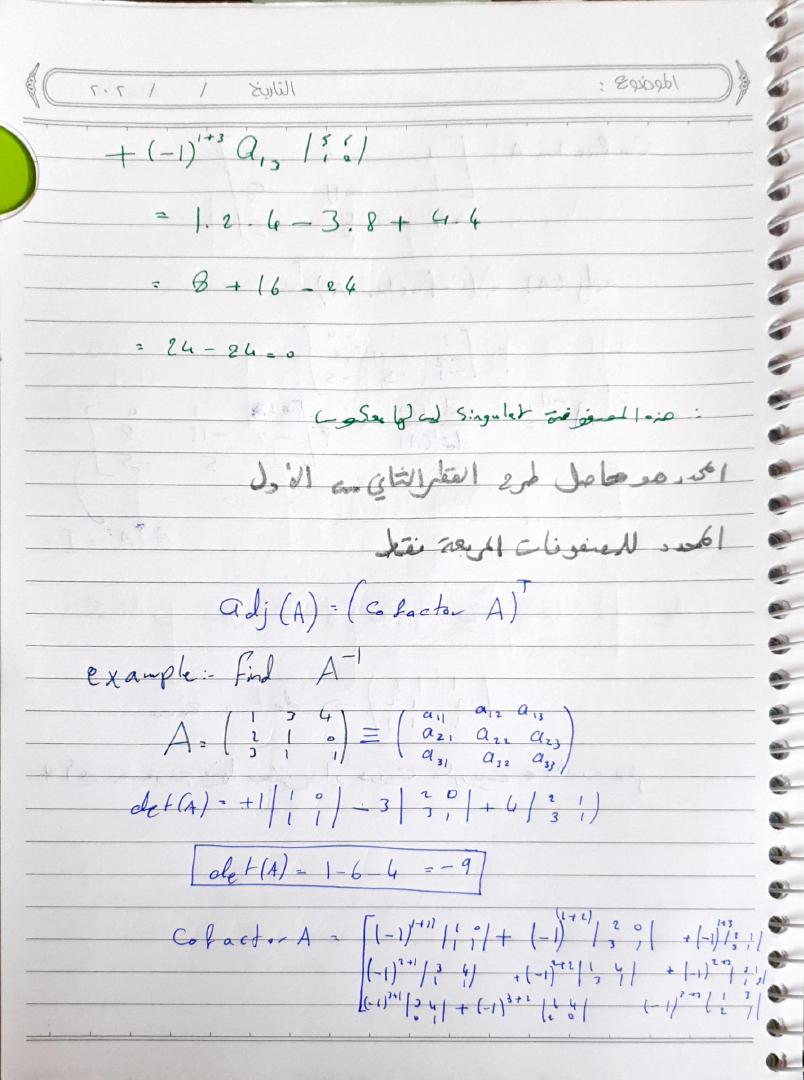 الموضوع : التاريخ / / ٢٠٢
+ (-1)^{1+3} a_{13} |5 6; 1 2|
= 1.2.4 - 3.8 + 4.4
= 8 + 16 - 24
= 24 - 24 = 0
∴ هذه المصفوفة singulet ليس لها معكوس
المحدد هو حاصل طرح القطر الثاني من الأول
المحدد للمصفوفات المربعة فقط
adj(A) = (Cofactor A)^T
example:- find A^{-1}
A = (1 3 4; 2 1 0; 3 1 1) ≡ (a_{11} a_{12} a_{13}; a_{21} a_{22} a_{23}; a_{31} a_{32} a_{33})
det(A) = +1 |1 0; 1 1| - 3 |2 0; 3 1| + 4 |2 1; 3 1|
det(A) = 1 - 6 - 4 = -9
Cofactor A = [(-1)^{1+1} |1 0; 1 1| + (-1)^{1+2} |2 0; 3 1| + (-1)^{1+3} |2 1; 3 1|
(-1)^{2+1} |3 4; 1 1| + (-1)^{2+2} |1 4; 3 1| + (-1)^{2+3}
(-1)^{3+1} |3 4; 0 1| + (-1)^{3+2} |1 4; 2 0| (-1)^{3+3} |1 3; 2 1|